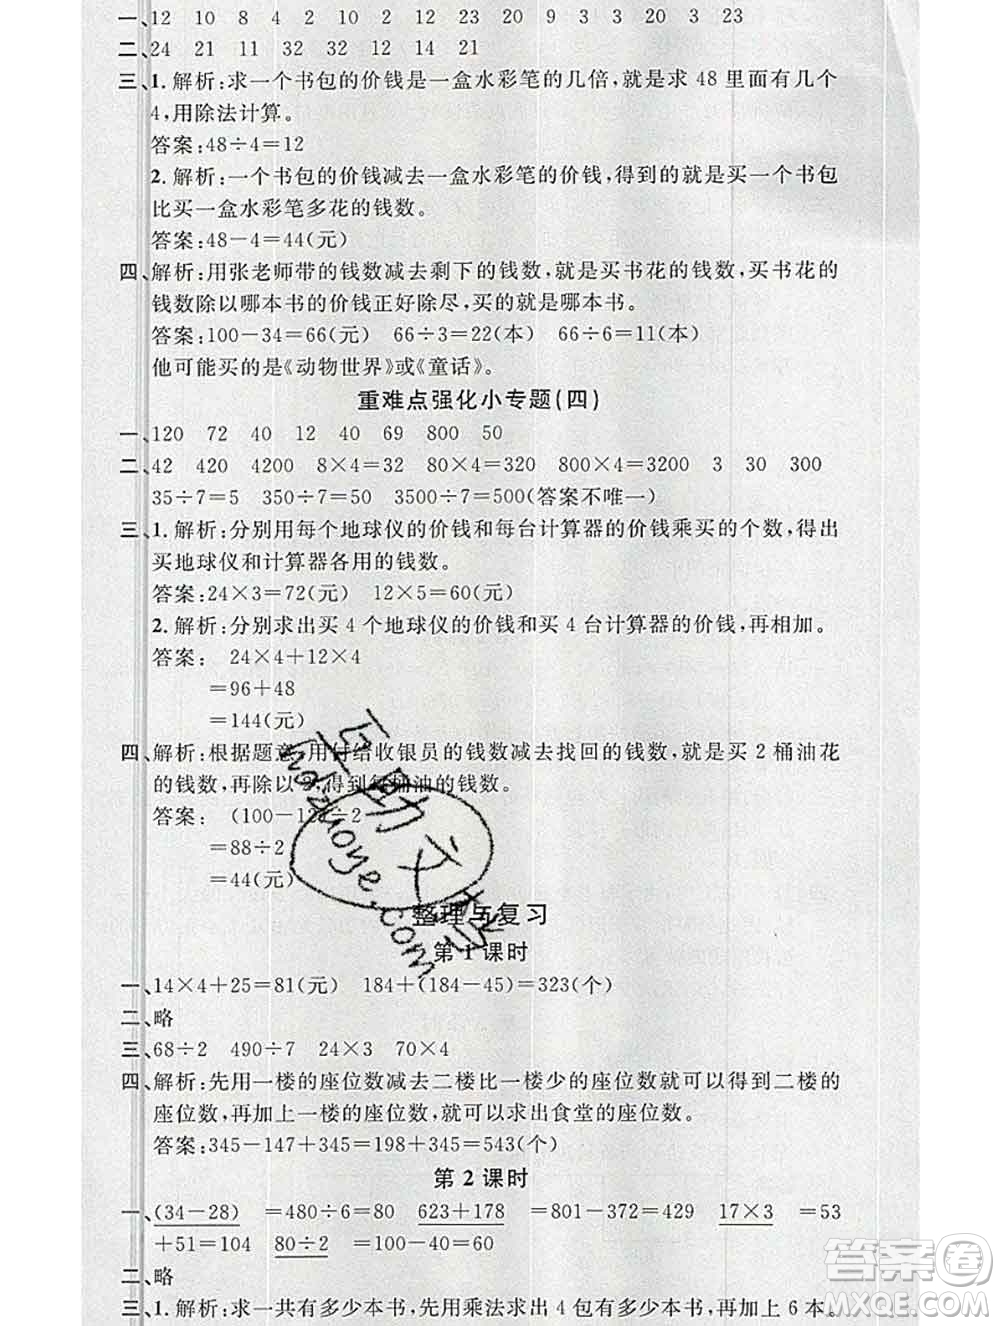 一、12 10 8 4 2 0 20 3 23
二、24 21 11 32 32 12 14 21
三、1. 解析:求一个书包的价钱是一盒水彩笔的几倍,就是求 48 里面有几个
4,用除法计算。
答案:48÷4=12
2. 解析:一个书包的价钱减去一盒水彩笔的价钱,得到的就是买一个书包
比买一盒水彩笔多花的钱数。
答案:48-4=44(元)
四、解析:用张老师带的钱数减去剩下的钱数,就是买书花的钱数,买书花的
钱数除以哪本书的价钱正好除尽,买的就是哪本书。
答案:100-34=66(元) 66÷3=22(本) 66÷6=11(本)
他可能买的是《动物世界》或《童话》。
重难点强化小专题(四)
一、120 72 40 12 40 69 800 50
二、42 420 4200 8×4=32 80×4=320 800×4=3200 3 30 300
35÷7=5 350÷7=50 3500÷7=500(答案不唯一)
三、1. 解析:分别用每个地球仪的价钱和每台计算器的价钱乘买的个数,得出
买地球仪和计算器各用的钱数。
答案:24×3=72(元) 12×5=60(元)
2. 解析:分别求出买 4 个地球仪的价钱和买 4 台计算器的价钱,再相加。
答案: 24×4+12×4
=96+48
=144(元)
四、解析:根据题意,用付给收银员的钱数减去找回的钱数,就是买 2 桶油花
的钱数,再除以 2,得到每桶油的钱数。
答案: (100-12)÷2
=88÷2
=44(元)
整理与复习
第 1 课时
一、14×4+25=81(元) 184+(184-45)=323(个)
二、略
三、68÷2 490÷7 24×3 70×4
四、解析:先用一楼的座位数减去二楼比一楼少的座位数就可以得到二楼的
座位数,再加上一楼的座位数,就可以求出食堂的座位数。
答案:345-147+345=198+345=543(个)
第 2 课时
一、(34-28) =480÷6=80 623+178 =801-372=429 17×3 =53
+51=104 80÷2 =100-40=60
二、略
三、1. 解析:求一共有多少本书,先用乘法求出 4 包有多少本书,再加上 6 本。
答案圈
MXQE.COM
hdzuoye.com